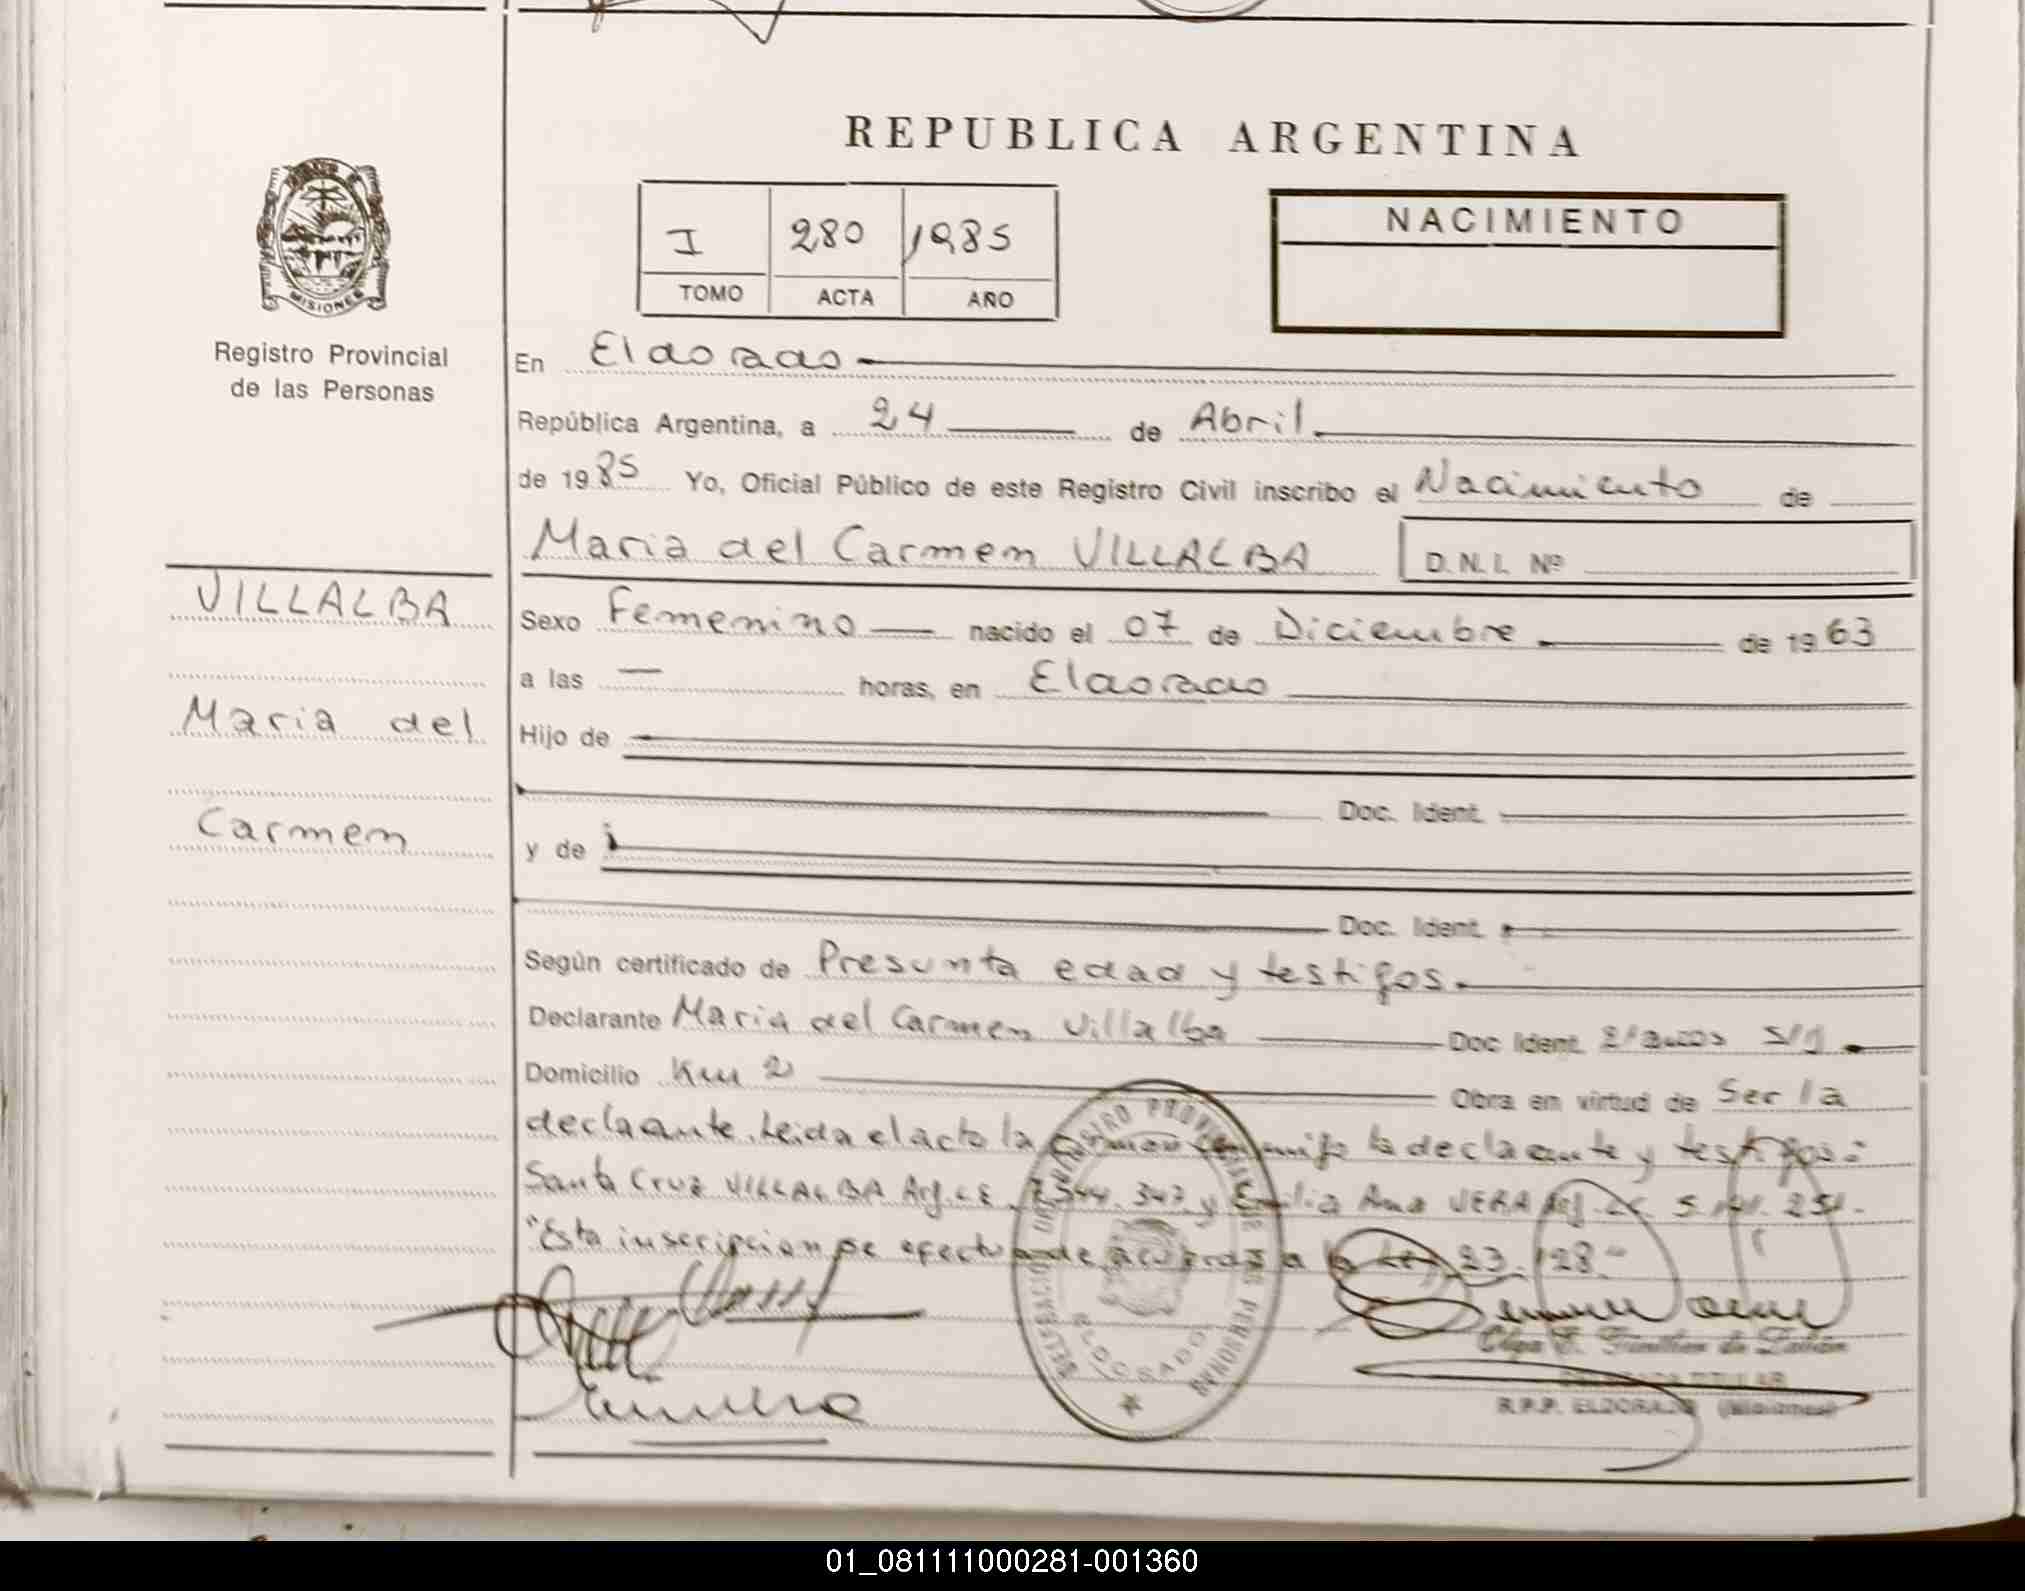 REPUBLICA ARGENTINA
MISIONES
Registro Provincial
de las Personas
I 280 1985
TOMO ACTA AÑO
NACIMIENTO
En Eldorado
República Argentina, a 24 de Abril.
de 1985 Yo, Oficial Público de este Registro Civil inscribo el Nacimiento de
Maria del Carmen VILLALBA D.N.I. Nº
VILLALBA
Maria del
Carmen
Sexo Femenino nacido el 07 de Diciembre de 1963
a las — horas, en Eldorado
Hijo de
Doc. Ident.
y de
Doc. Ident.
Según certificado de Presunta edad y testigos.
Declarante Maria del Carmen Villalba Doc Ident. 21 años S/
Domicilio Km 2 Obra en virtud de Ser la
declaante. Leida el acto la firman conmigo la declaante y testigos:
Santa Cruz VILLALBA Arj. 344.347 y Emilia Ana VERA Arj. 5.
"Esta inscripcion se efectua de acuerdo a la Ley 23.128."
REGISTRO PROVINCIAL DE LAS PERSONAS
ELDORADO
DELEGADA TITULAR
R.P.P. ELDORADO (Misiones)
01_081111000281-001360